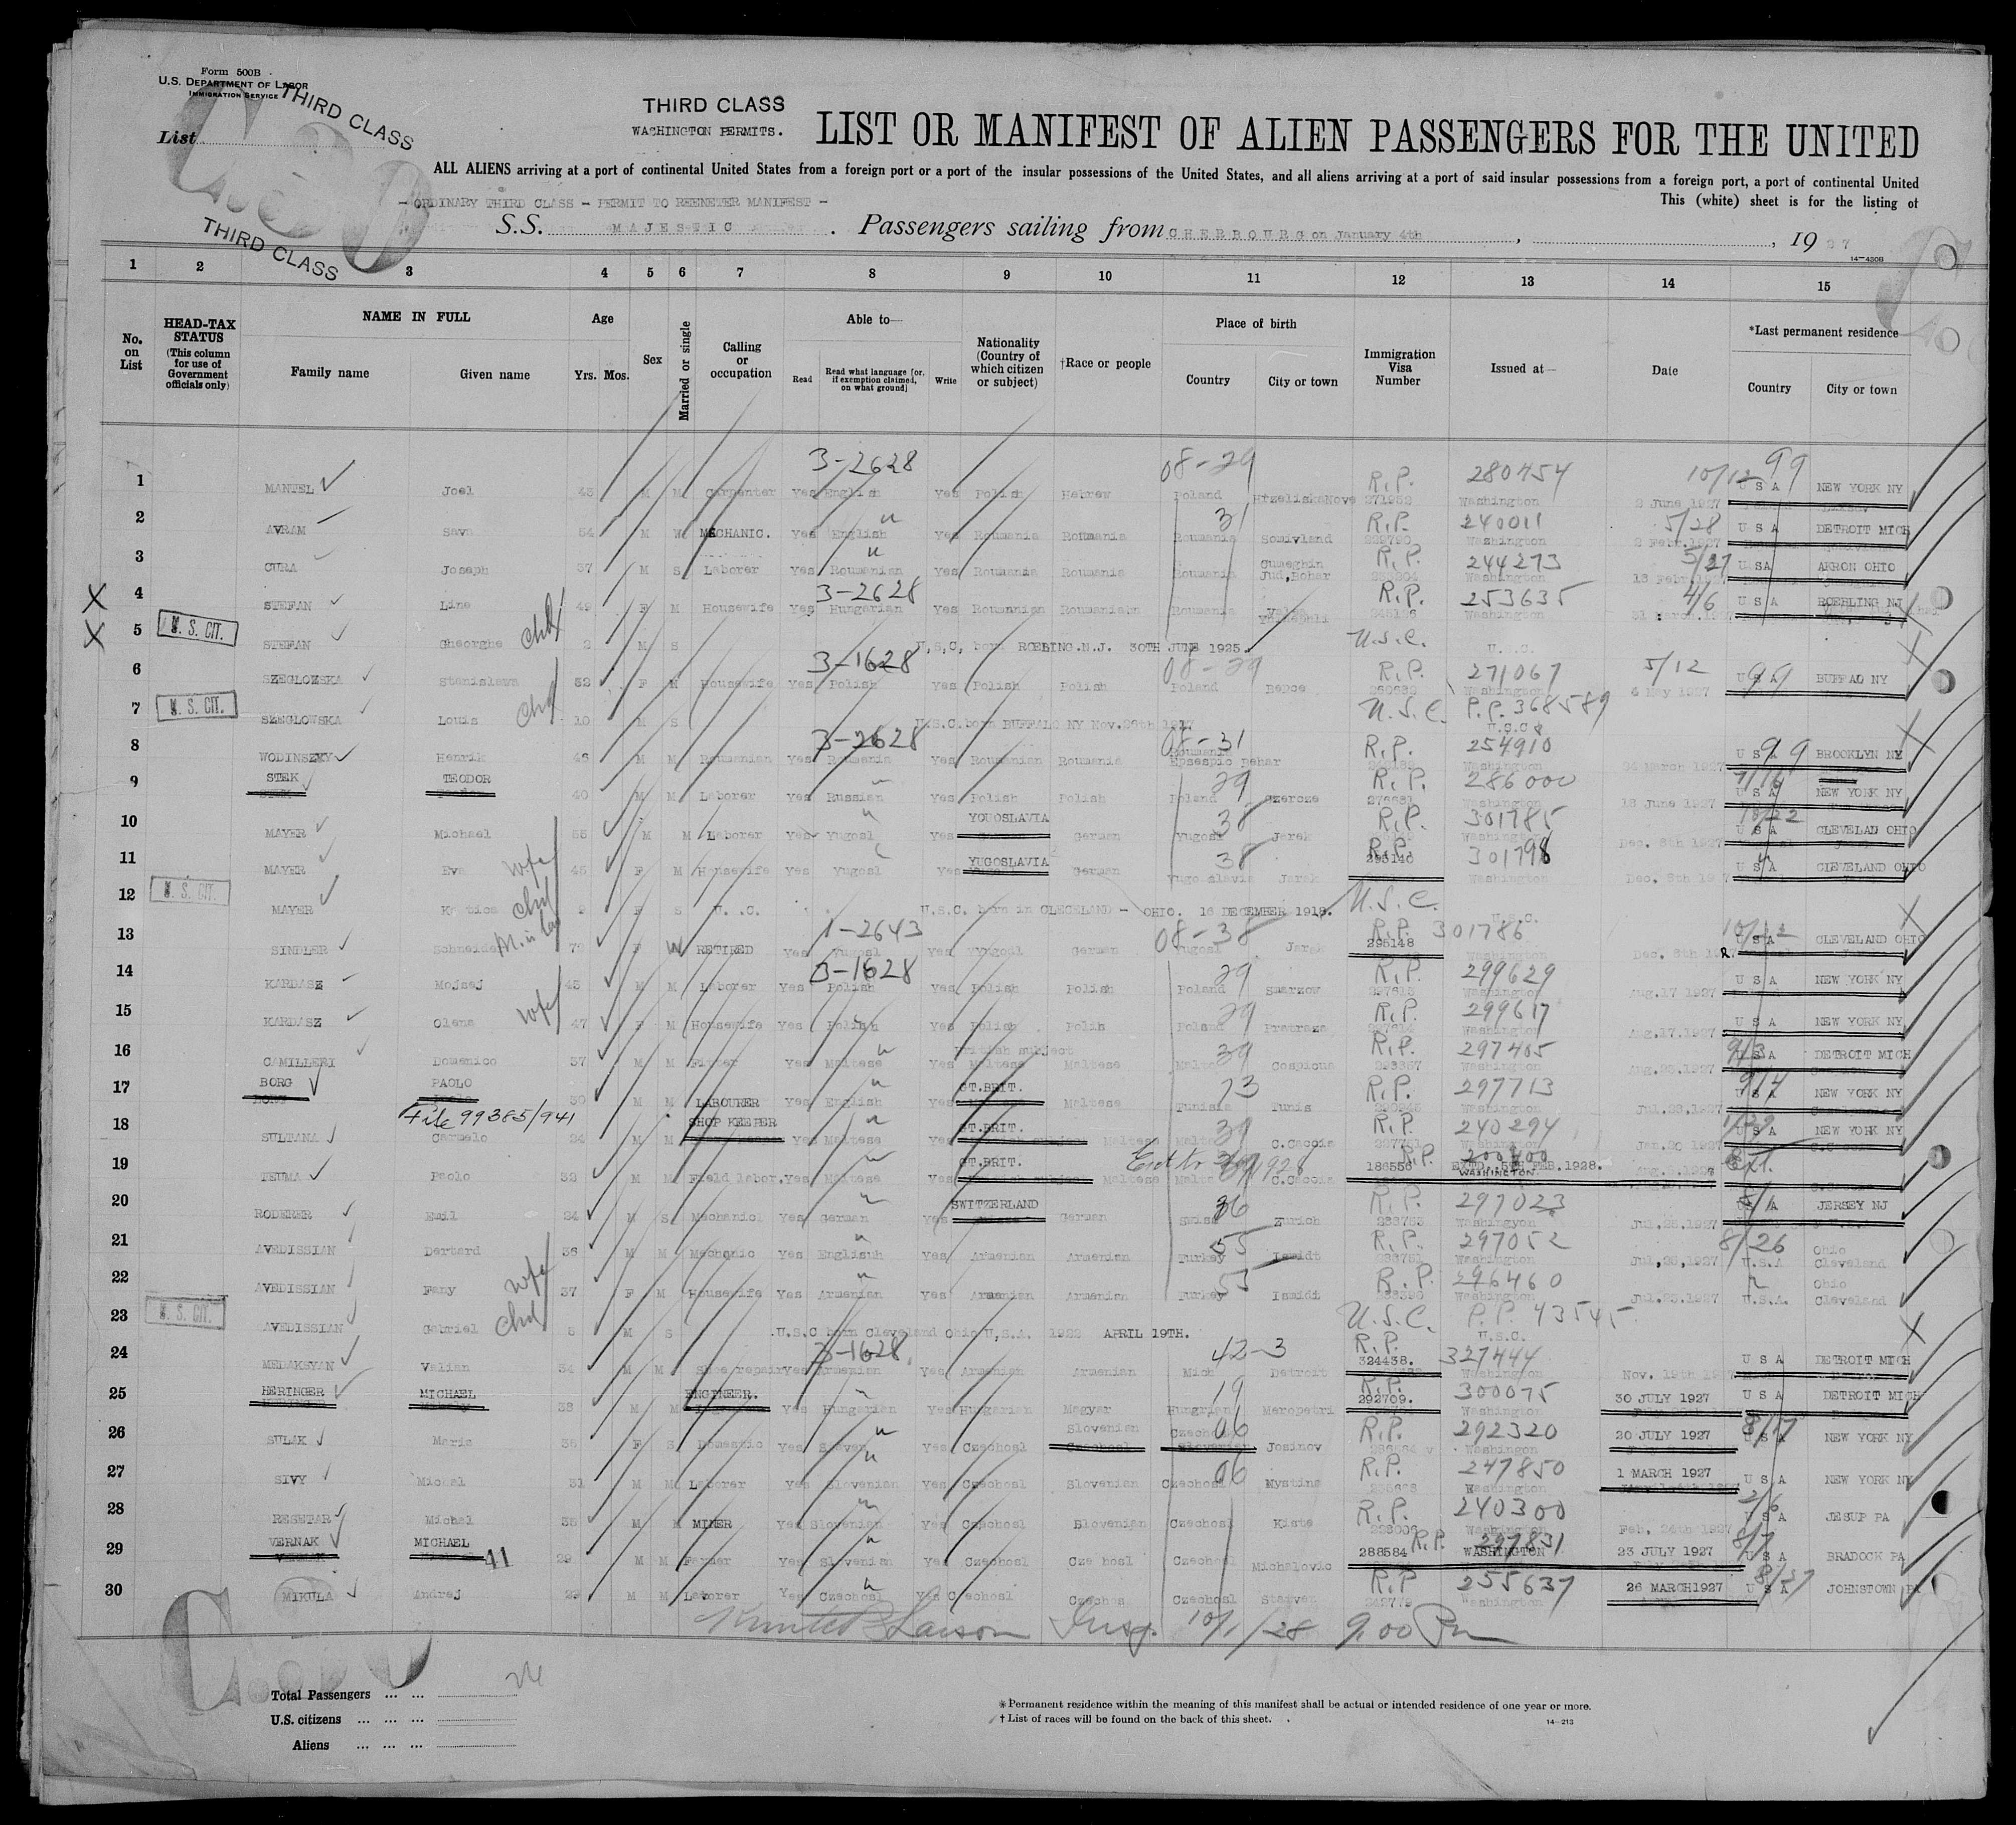 Form 500B
U.S. DEPARTMENT OF LABOR
IMMIGRATION SERVICE
THIRD CLASS
List
THIRD CLASS
THIRD CLASS
WASHINGTON PERMITS.
LIST OR MANIFEST OF ALIEN PASSENGERS FOR THE UNITED
ALL ALIENS arriving at a port of continental United States from a foreign port or a port of the insular possessions of the United States, and all aliens arriving at a port of said insular possessions from a foreign port, a port of continental United
This (white) sheet is for the listing of
- ORDINARY THIRD CLASS - PERMIT TO REENETER MANIFEST -
S.S. MAJESTIC . Passengers sailing from CHERBOURG on January 4th , , 19 27
14-430B
1 2 3 4 5 6 7 8 9 10 11 12 13 14 15
No. on List
HEAD-TAX STATUS (This column for use of Government officials only)
NAME IN FULL
Family name Given name
Age
Yrs. Mos.
Sex
Married or single
Calling or occupation
Able to—
Read Read what language [or, if exemption claimed, on what ground] Write
Nationality (Country of which citizen or subject)
†Race or people
Place of birth
Country City or town
Immigration Visa Number
Issued at—
Date
*Last permanent residence
Country City or town
3-2628 08-29 R.P. 280454 10/12 99
1 MANTEL Joel 43 M M Carpenter Yes English Yes Polish Hebrew Poland 271952 Washington 2 June 1927 U S A NEW YORK NY
31 R.P. 240011 5/28
2 AVRAM Sava 54 M W MECHANIC. Yes English Yes Roumania Roumania Roumania Somivland Washington 2 Febr. 1927 U S A DETROIT MICH
R.P. 244273 5/27
3 CURA Joseph 37 M S Laborer Yes Roumanian Yes Roumania Roumania Roumania Cumeghin Jud,Bohar Washington U SA AKRON OHIO
3-2628 R.P. 253635 4/6
4 STEFAN Line 49 F M Housewife Yes Hungarian Yes Roumanian Roumania Washington U S A ROEBLING NJ
5 U. S. CIT. STEFAN Gheorghe chd 2 M S U,S,C, born ROEBING.N.J. 30TH JUNE 1925. U.S.C.
3-1628 08-29 R.P. 271067 5/12 99
6 SZEGLOWSKA Stanislawa 52 F M Housewife Yes Polish Yes Polish Polish Poland Repce Washington 6 May 1927 U S A BUFFAO NY
7 U. S. CIT. SZEGLOWSKA Louis chd 10 M S U.S.C. born BUFFALO NY Nov. U.S.C. P.P. 368589
3-2628 08-31 R.P. 254910 99
8 WODINSZKY Henrik 46 M M Roumanian Yes Roumania Yes Roumanian Roumania Roumania Washington March 1927 U S A BROOKLYN NY
29 R.P. 286000 7/16
9 STEK TEODOR 40 M M Laborer Yes Russian Yes Polish Polish Poland Czercze Washington 18 June 1927 U S A NEW YORK NY
38 R.P. 301785 10/22
10 MAYER Michael 55 M M Laborer Yes Yugosl Yes YOUOSLAVIA German Yugosl Jarek Washington Dec. 8th U S A CLEVELAD OHIO
38 R.P. 301798
11 MAYER Eva wfe 45 F M Housewife Yes Yugosl Yes YUGOSLAVIA German Yugoslavia Jarek 295140 Washington Dec. 8th U S A CLEVELAND OHIO
12 U. S. CIT. MAYER chd 9 F S U.S.C. born in CLECELAND - OHIO. 16 DECEMBER 1918. U.S.C. U.S.C.
1-2643 08-38 R.P. 301786
13 SINDLER M. in law F W RETIRED Yes Yugosl Yes Yugosl German Yugosl Jarek 295148 Washington Dec. 8th U S A CLEVELAND OHIO
3-1628 29 R.P. 299629
14 KARDASZ Mojsej 43 M M Laborer Yes Polish Yes Polish Polish Poland Smarzow 297615 Washington Aug.17 1927 U S A NEW YORK NY
29 R.P. 299617
15 KARDASZ Olena wfe 47 F M Housewife Yes Polish Yes Polish Polish Poland 297614 Washington Aug.17.1927 U S A NEW YORK NY
39 R.P. 297405 9/3
16 CAMILLERI Domenico 37 M M Fitter Yes Maltese Yes British subject Maltese Maltese Malta Cospicua Washington U S A DETROIT MICH
73 R.P. 297713 9/4
17 BORG PAOLO 30 M M LABOURER Yes English Yes GT.BRIT. Maltese Tunisia Tunis Washington Jul.28.1927 U S A NEW YORK NY
File 99385/941 39 R.P. 240294
18 SULTANA Carmelo 24 M M SHOP KEEPER Yes Maltese Yes GT.BRIT. Maltese Malta C.Cacoia Washington Jan.26 1927 U S A NEW YORK NY
19 TEUMA Paolo 32 M M Field labor. Yes Maltese Yes GT.BRIT. Maltese Malta C.Cacoia 186556 R.P. 200400 EXTD. 5TH FEB.1928. WASHINGTON Ext.
36 R.P. 297023 8/1
20 RODERER Emil 24 M S Mechanic Yes German Yes SWITZERLAND German Swiss Zurich Washingyon Jul.25.1927 U S A JERSEY NJ
55 R.P. 297052 8/26
21 AVEDISSIAN Dertard 36 M M Mechanic Yes Englisuh Yes Armenian Armenian Turkey Ismidt Washington Jul,26,1927 U.S.A Ohio Cleveland
55 R.P. 296460
22 AVEDISSIAN Fany wfe 37 F M Housewife Yes Armenian Yes Armenian Armenian Turkey Ismidt Washington Jul.23.1927 U.S.A. Ohio Cleveland
23 U. S. CIT. AVEDISSIAN Gabriel chd 5 M S .U.S.C born Cleveland Ohio U.S.A. 1922 APRIL 19TH. U.S.C. P.P. 43545 U.S.C.
3-1628 42-3 R.P. 327444
24 MEDAKSYAN Valian 34 M M Shoe repair Yes Armenian Yes Armenian Armenian Mich Detroit 324438. Washington Nov. 19th 1927 U S A DETROIT MICH
19 R.P. 300075
25 HERINGER MICHAEL 38 M M ENGINEER. Yes Hungarian Yes Hungarian Magyar Hungrian Meropetri 292709. Washington 30 JULY 1927 U S A DETROIT MICH
06 R.P. 292320 8/17
26 SULAK Marie 36 F S Domestic Yes Sloven Yes Czechosl Slovenian Czechosl Josinov Washingon 20 JULY 1927 U S A NEW YORK NY
06 R.P. 247850
27 SIVY Michal 31 M M Laborer Yes Slovenian Yes Czechosl Slovenian Czechosl Mystina Washington 1 MARCH 1927 U S A NEW YORK NY
R.P. 240300 2/6
28 RESETAR Michal 35 M M MINER Yes Slovenian Yes Czechosl Slovenian Czechosl Kiste Washington Feb. 24th 1927 U S A JESUP PA
R.P. 297831 8/7
29 VERNAK MICHAEL 41 29 M M Farmer Yes Slovenian Yes Czechosl Czechosl Czechosl Michalovic 288584 WASHINGTON 23 JULY 1927 U S A BRADOCK PA
R.P 255637 8/27
30 MIKULA Andrej 29 M M Laborer Yes Czechosl Yes Czechosl Czechos Czechosl 242779 Washington 26 MARCH1927 U S A JOHNSTOWN PA
Larson Insp. 10/1/28 9.00 Pm
Total Passengers ... ...
U.S. citizens ... ... ...
Aliens ... ... ...
* Permanent residence within the meaning of this manifest shall be actual or intended residence of one year or more.
† List of races will be found on the back of this sheet.
14-213